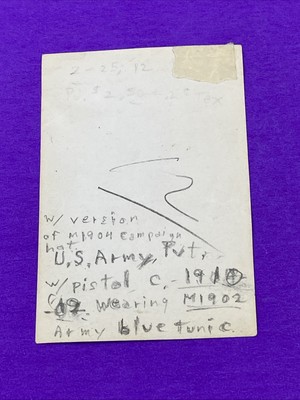 2-25, 12
w/ version
of M1904 campaign
hat.
U.S. Army, Pvt.
w/ pistol C. - 1910
-12. Wearing M1902
Army blue tunic.